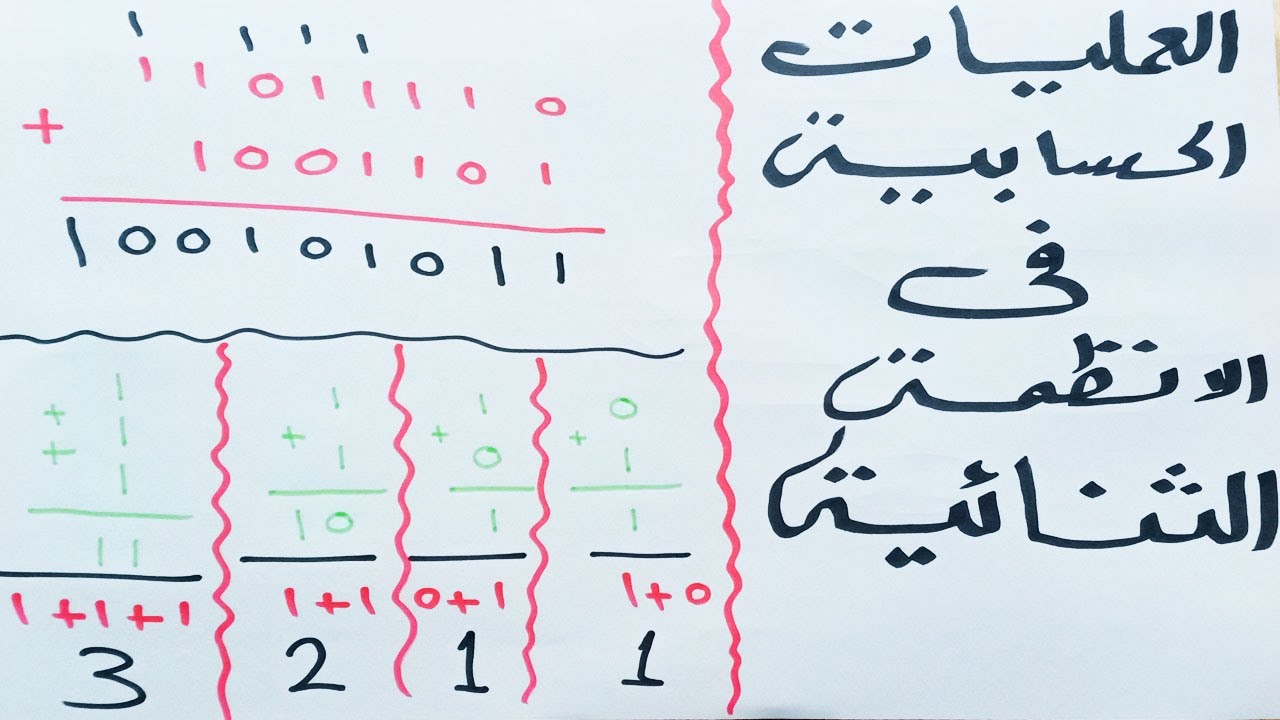 العمليات
الحسابية
فى
الانظمة
الثنائية
1 1 1 1
1 1 0 1 1 1 1 0
+ 1 0 0 1 1 0 1
1 0 0 1 0 1 0 1 1
1
+ 1
+ 1
1 1
1+1+1
3
1
+ 1
1 0
1+1
2
1
+ 0
1
0+1
1
0
+ 1
1
1+0
1